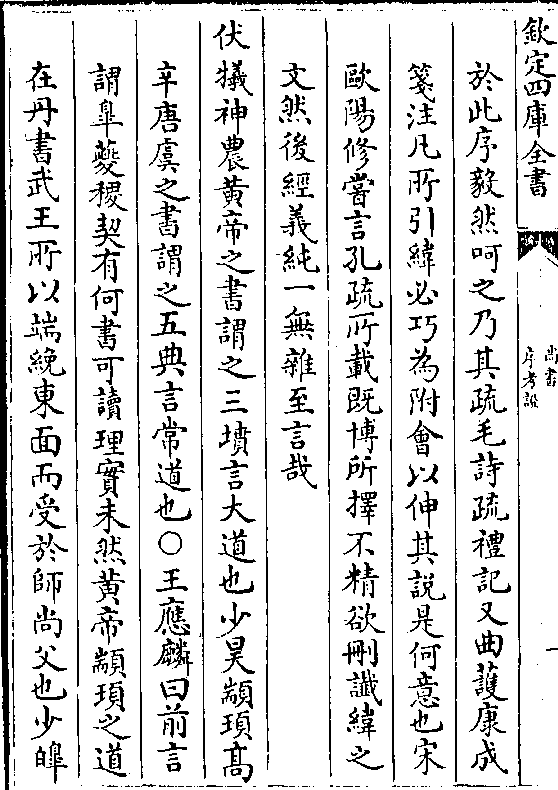 欽定四庫全書
尚書
序考證
於此序毅然呵之乃其疏毛詩疏禮記又曲護康成
箋注凡所引緯必巧為附會以伸其說是何意也宋
歐陽修嘗言孔疏所載既博所擇不精欲刪讖緯之
文然後經義純一無雜至言哉
伏犧神農黃帝之書謂之三墳言大道也少昊顓頊高
辛唐虞之書謂之五典言常道也〇王應麟曰前言
謂臯夔稷契有何書可讀理實未然黃帝顓頊之道
在丹書武王所以端絻東面而受於師尚父也少皥